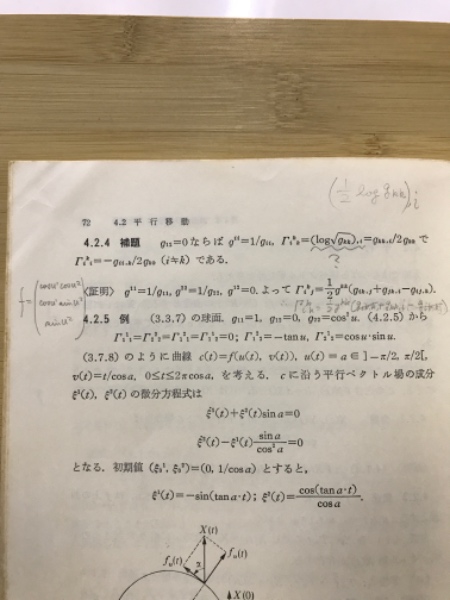 (1/2 log g_kk),i
72 4.2 平行移動
4.2.4 補題 g₁₂=0ならば gⁱⁱ=1/gᵢᵢ, Γᵢᵏₖ=(log√gₖₖ),ᵢ=gₖₖ,ᵢ/2gₖₖ で
Γᵢᵏᵢ=-gᵢᵢ,ₖ/2gₖₖ (i≠k) である.
?
〈証明〉 g¹¹=1/g₁₁, g²²=1/g₂₂, g¹²=0. よって Γᵢᵏⱼ=½gᵏᵏ(gₖᵢ,ⱼ+gⱼₖ,ᵢ-gᵢⱼ,ₖ).
f=
cosu¹cosu²
cosu¹sinu²
sinu¹
4.2.5 例 (3.3.7) の球面. g₁₁=1, g₁₂=0, g₂₂=cos²u. (4.2.5) から
Γ₁¹₁=Γ₁²₁=Γ₁¹₂=Γ₂²₂=0; Γ₁²₂=-tan u, Γ₂¹₂=cos u·sin u.
(3.7.8) のように曲線 c(t)=f(u(t), v(t)), u(t)=a∈]-π/2, π/2[,
v(t)=t/cos a, 0≤t≤2πcos a, を考える. cに沿う平行ベクトル場の成分
ξ¹(t), ξ²(t) の微分方程式は
ξ̇¹(t)+ξ²(t)sin a=0
ξ̇²(t)-ξ¹(t) sin a/cos² a=0
となる. 初期値 (ξ₀¹, ξ₀²)=(0, 1/cos a) とすると,
ξ¹(t)=-sin(tan a·t); ξ²(t)=cos(tan a·t)/cos a.
X(t)
fᵤ(t) α fᵥ(t)
X(0)